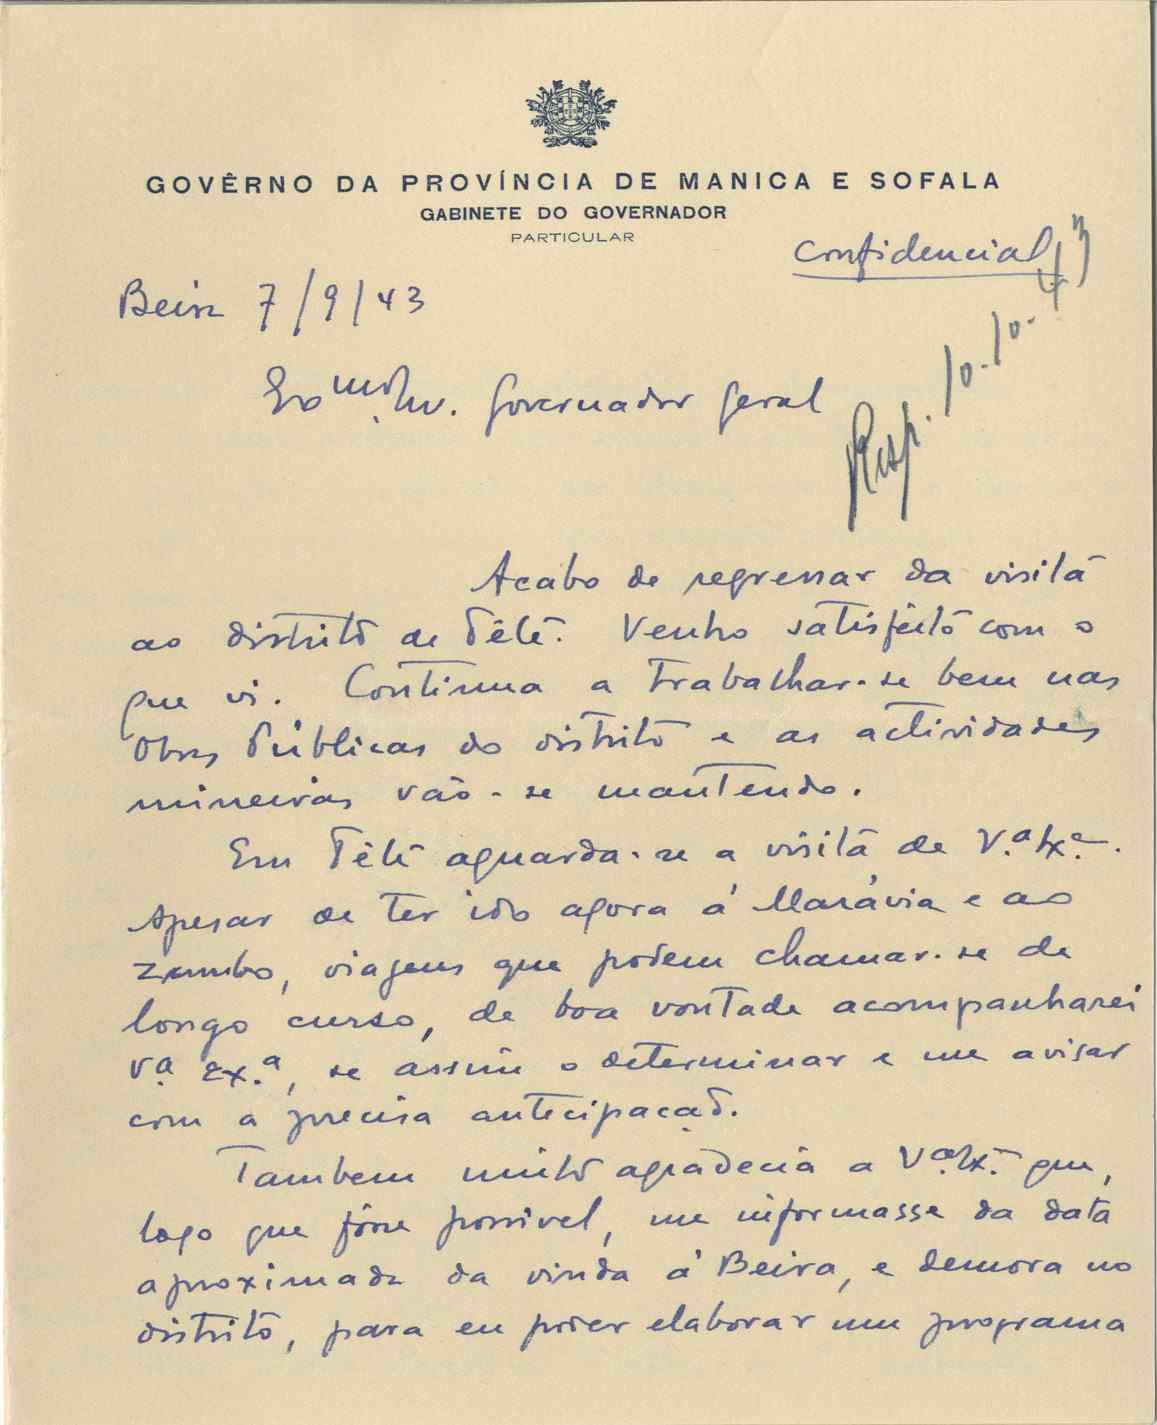 GOVÊRNO DA PROVÍNCIA DE MANICA E SOFALA
GABINETE DO GOVERNADOR
PARTICULAR
Confidencial
Beira 7/9/43
Resp. 10.10.43
Exmo. Snr. Governador Geral
Acabo de regressar da visita
ao distrito de Téte. Venho satisfeito com o
que vi. Continua a trabalhar-se bem nas
Obras Públicas do distrito e as actividades
mineiras vão-se mantendo.
Em Téte aguarda-se a visita de V.ª Ex.ª.
Apesar de ter ido agora á Marávia e ao
Zumbo, viagens que podem chamar-se de
longo curso, de boa vontade acompanharei
V.ª Ex.ª, se assim o determinar e me avisar
com a precisa antecipação.
Tambem muito agradecia a V.ª Ex.ª que,
logo que fôsse possivel, me informasse da data
aproximada da vinda á Beira, e demora no
distrito, para eu poder elaborar um programa